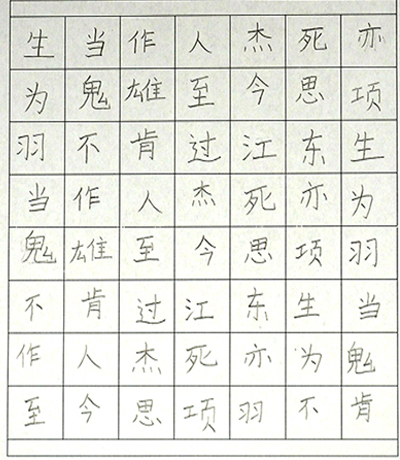 生当作人杰死亦
为鬼雄至今思项
羽不肯过江东生
当作人杰死亦为
鬼雄至今思项羽
不肯过江东生当
作人杰死亦为鬼
至今思项羽不肯